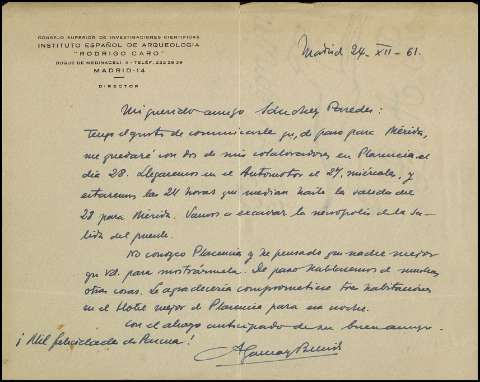 CONSEJO SUPERIOR DE INVESTIGACIONES CIENTIFICAS
INSTITUTO ESPAÑOL DE ARQUEOLOGIA
"RODRIGO CARO"
DUQUE DE MEDINACELI, 4 - TELÉF.
MADRID-14
DIRECTOR
Madrid 24-XII-61
Mi querido amigo Sánchez Paredes:
Tengo el gusto de comunicarle que, de paso para Mérida,
me quedaré con dos de mis colaboradores en Plasencia el
día 28. Llegaremos en el Automotor el 27, miércoles, y
estaremos las 24 horas que median hasta la salida del
28 para Mérida. Vamos a excavar la necrópolis de la sa-
lida del puente.
No conozco Plasencia y he pensado que nadie mejor
que Vd. para mostrármela. De paso hablaremos de muchas
otras cosas. Le agradecería comprometiese tres habitaciones
en el Hotel mejor de Plasencia para esa noche.
Con el abrazo anticipado de su buen amigo.
¡Mil felicidades de Pascua!
A García y Bellido